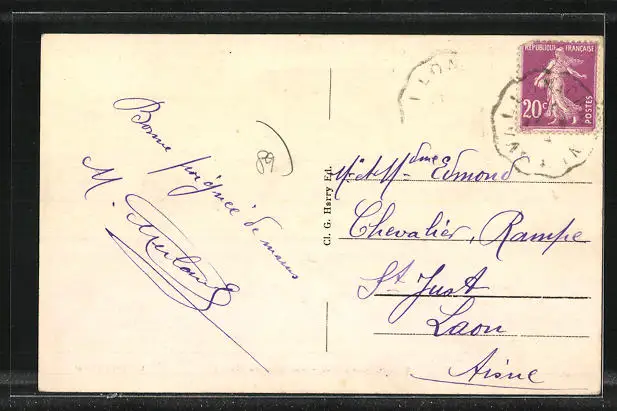 Bonne poignée de mains
M.
81
Cl. G. Harry Ed.
RÉPUBLIQUE FRANÇAISE
20c
POSTES
M. et Mdme Edmond
Chevalier, Rampe
St Just
Laon
Aisne